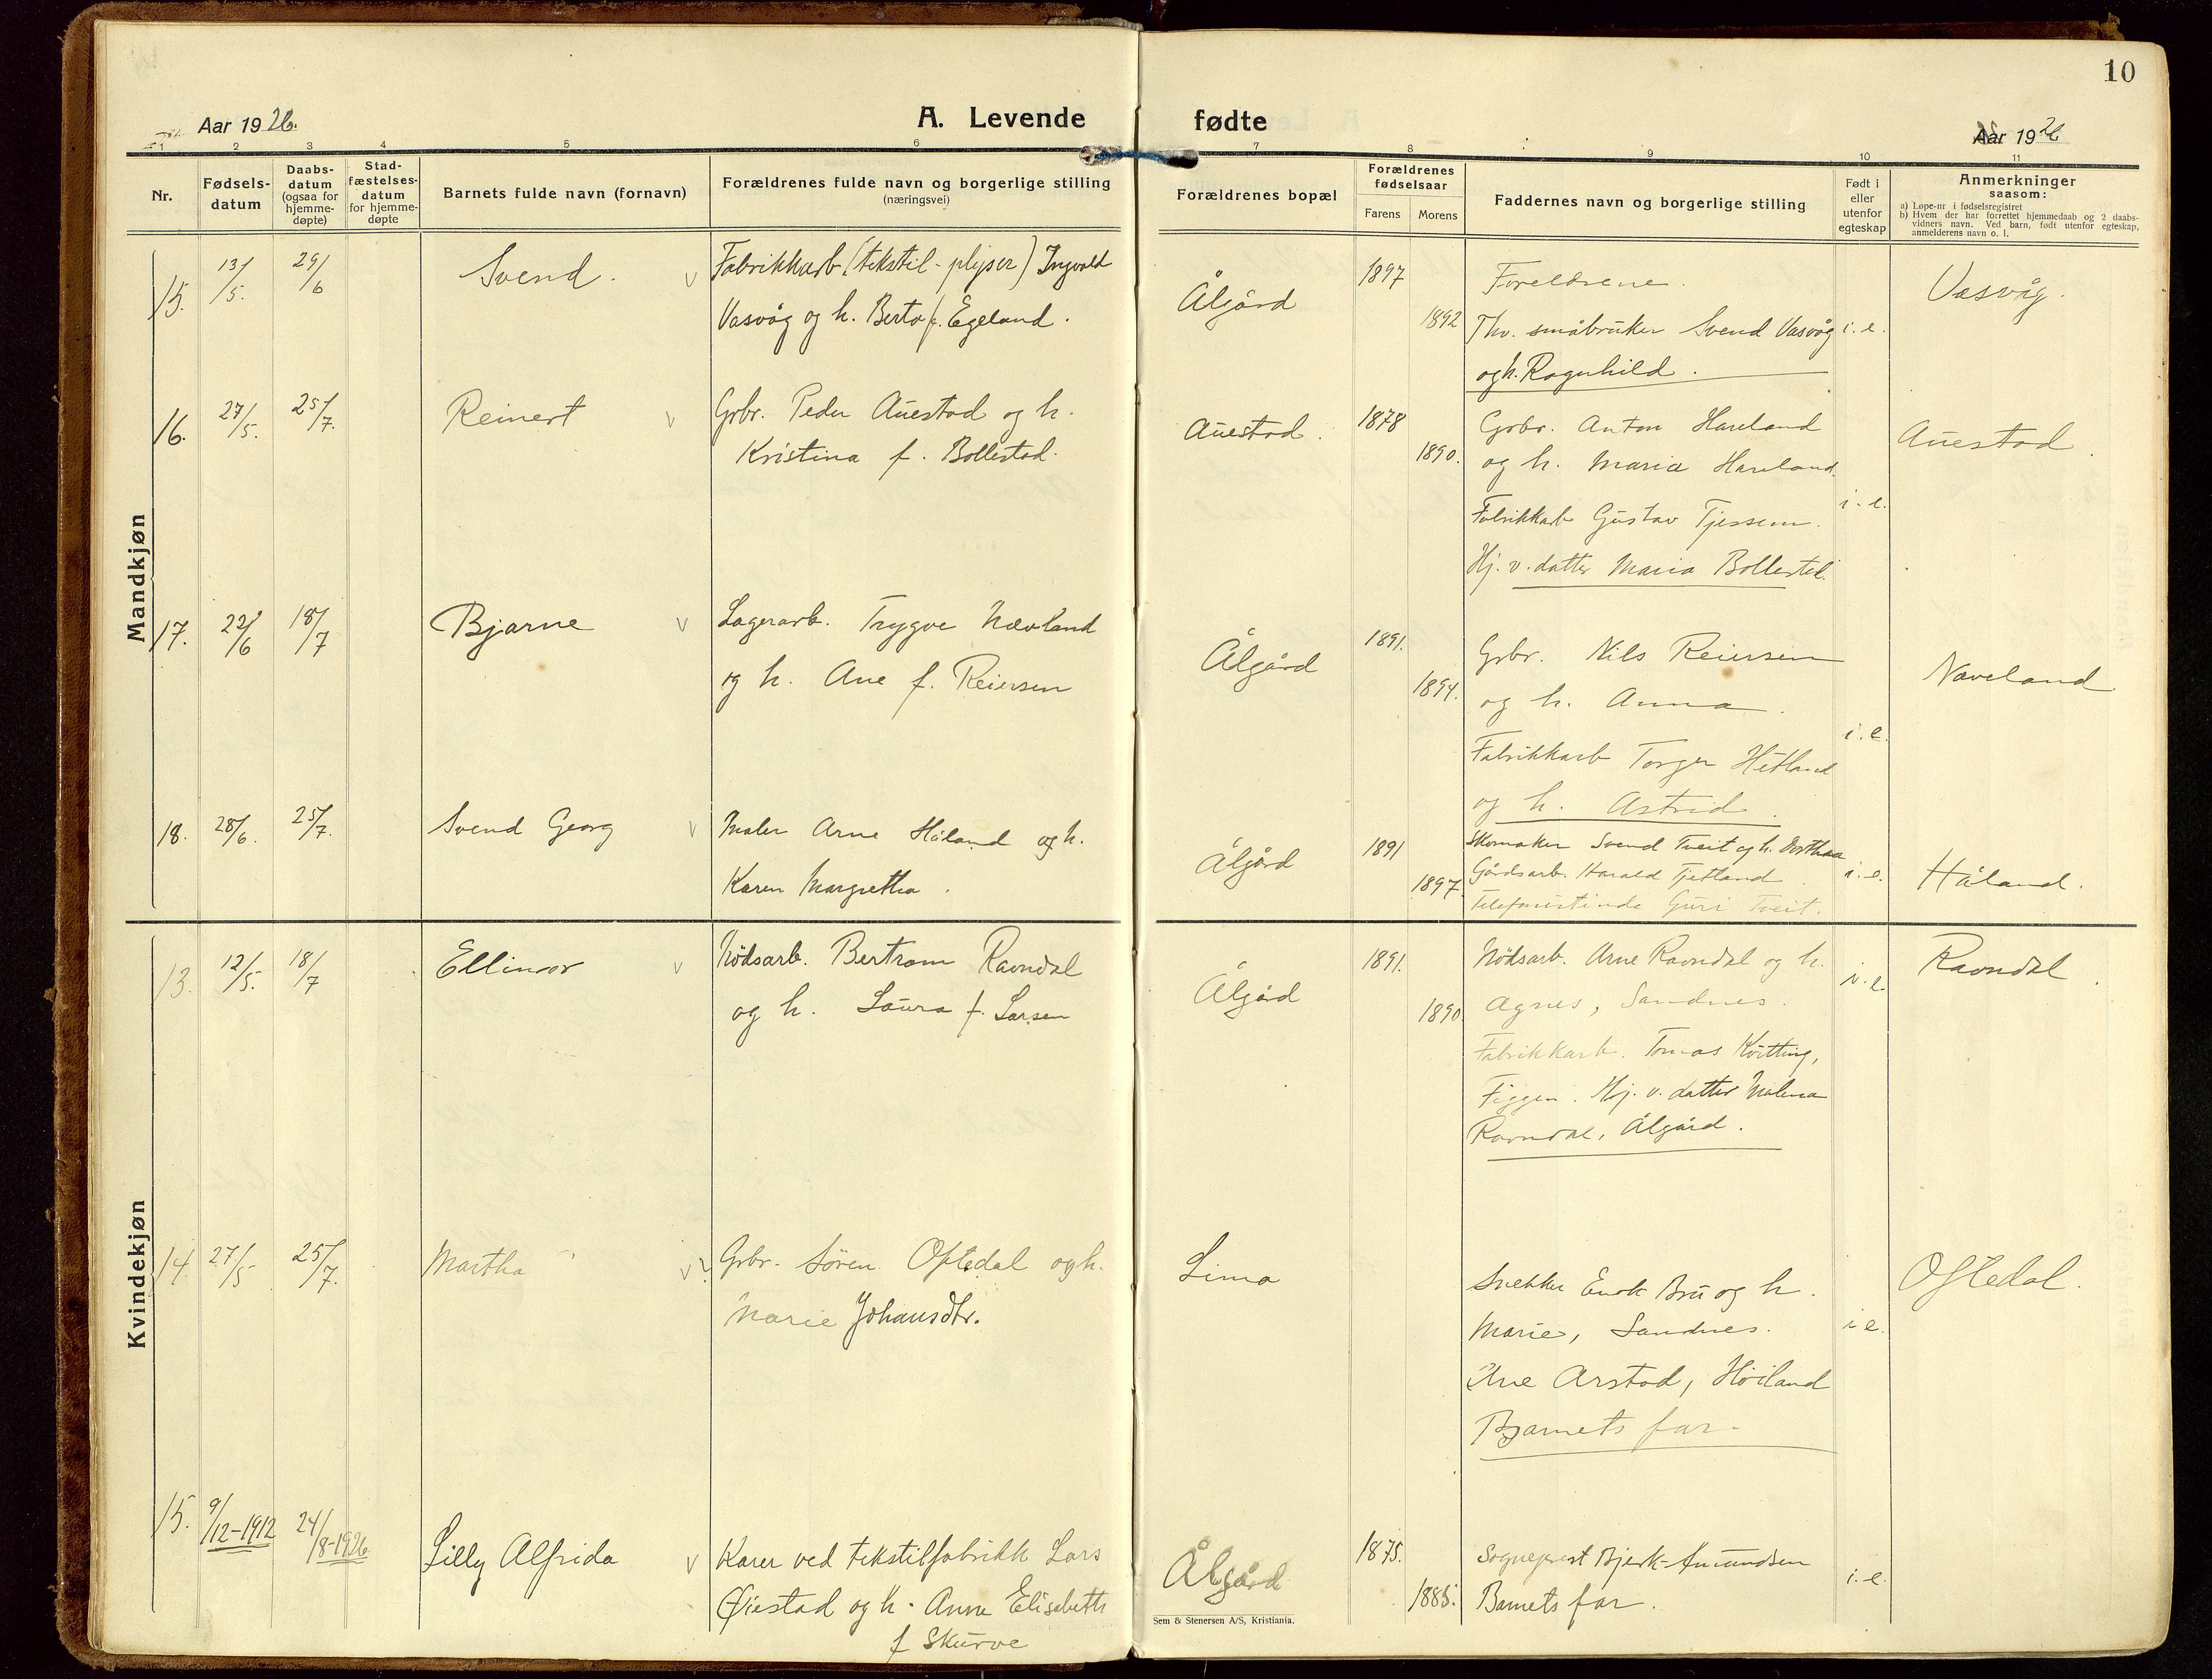 10
Aar 1926.
A. Levende
fødte
Aar 1926
1 2 3 4 5 6 7 8 9 10 11
Nr.
Fødsels-
datum
Daabs-
datum
(ogsaa for
hjemme-
døpte)
Stad-
fæstelses-
datum
for hjemme-
døpte
Barnets fulde navn (fornavn)
Forældrenes fulde navn og borgerlige stilling
(næringsvei)
Forældrenes bopæl
Forældrenes
fødselsaar
Farens
Morens
Faddernes navn og borgerlige stilling
Født i
eller
utenfor
egteskap
Anmerkninger
saasom:
a) Løpe-nr i fødselsregistret
b) Hvem der har forrettet hjemmedaab og 2 daabs-
vidners navn. Ved barn, født utenfor egteskap,
anmelderens navn o. l.
Mandkjøn
15. 13/5. 29/6 Svend. v Fabrikkarb (tekstil-plyser) Ingvald
Vasvåg og h. Berta f. Egeland.
Ålgård 1897 1892
Foreldrene.
Thv. småbruker Svend Vasvåg
og h. Ragnhild.
i. e.
Vasvåg.
16. 27/5. 25/7. Reinert v Grbr. Peder Auestad og h.
Kristina f. Bollestad.
Auestad. 1878 1890.
Grbr. Anton Haveland
og h. Maria Haveland.
Fabrikkarb Gustav Tjessem.
Hj. v. datter Maria Bollestd.
i. e.
Auestad.
17. 22/6 18/7 Bjarne v Lagerarb. Trygve Nævland
og h. Ane f. Reiersen
Ålgård 1891. 1894.
Grbr. Nils Reiersen
og h. Anna.
Fabrikkarb Torger Hetland
og h. Astrid.
i. e.
Naveland
18. 28/6. 25/7. Svend Georg v Maler Arne Håland og h.
Karen Margretha.
Ålgård 1891 1897.
Skomaker Svend Tveit og h. Dorthea
Gårdsarb. Harald Tjetland
Telefonistinde Guri Tveit.
i. e.
Håland.
Kvindekjøn
13. 12/5. 18/7 Ellinor v Nödsarb. Bertram Ravndal
og h. Laura f. Larsen
Ålgård 1891. 1890
Nödsarb. Arne Ravndal og h.
Agnes, Sandnes.
Fabrikkarb. Tomas Kvitting,
Figgen. Hj. v. datter Malena
Ravndal, Ålgård.
i. e.
Ravndal.
14 27/5 25/7. Martha v Grbr. Sören Oftedal og h.
Marie Johansdtr.
Lima
Snekker Enok Bru og h.
Marie, Sandnes.
Ane Arstad, Höiland
Barnets far.
i e.
Oftedal.
15. 9/12-1912 24/8-1926 Lilly Alfrida v Karer ved tekstilfabrikk Lars
Øiestad og h. Anne Elisabeth
f Skurve
Ålgård 1875. 1885.
Sogneprest Bjerk-Amundsen
Barnets far.
i. e.
Sem & Stenersen A/S, Kristiania.